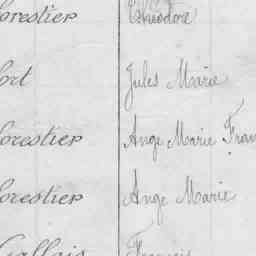 orestier Théodore
ort Jules Marie
orestier Ange Marie Fran
orestier Ange Marie
Gallais François